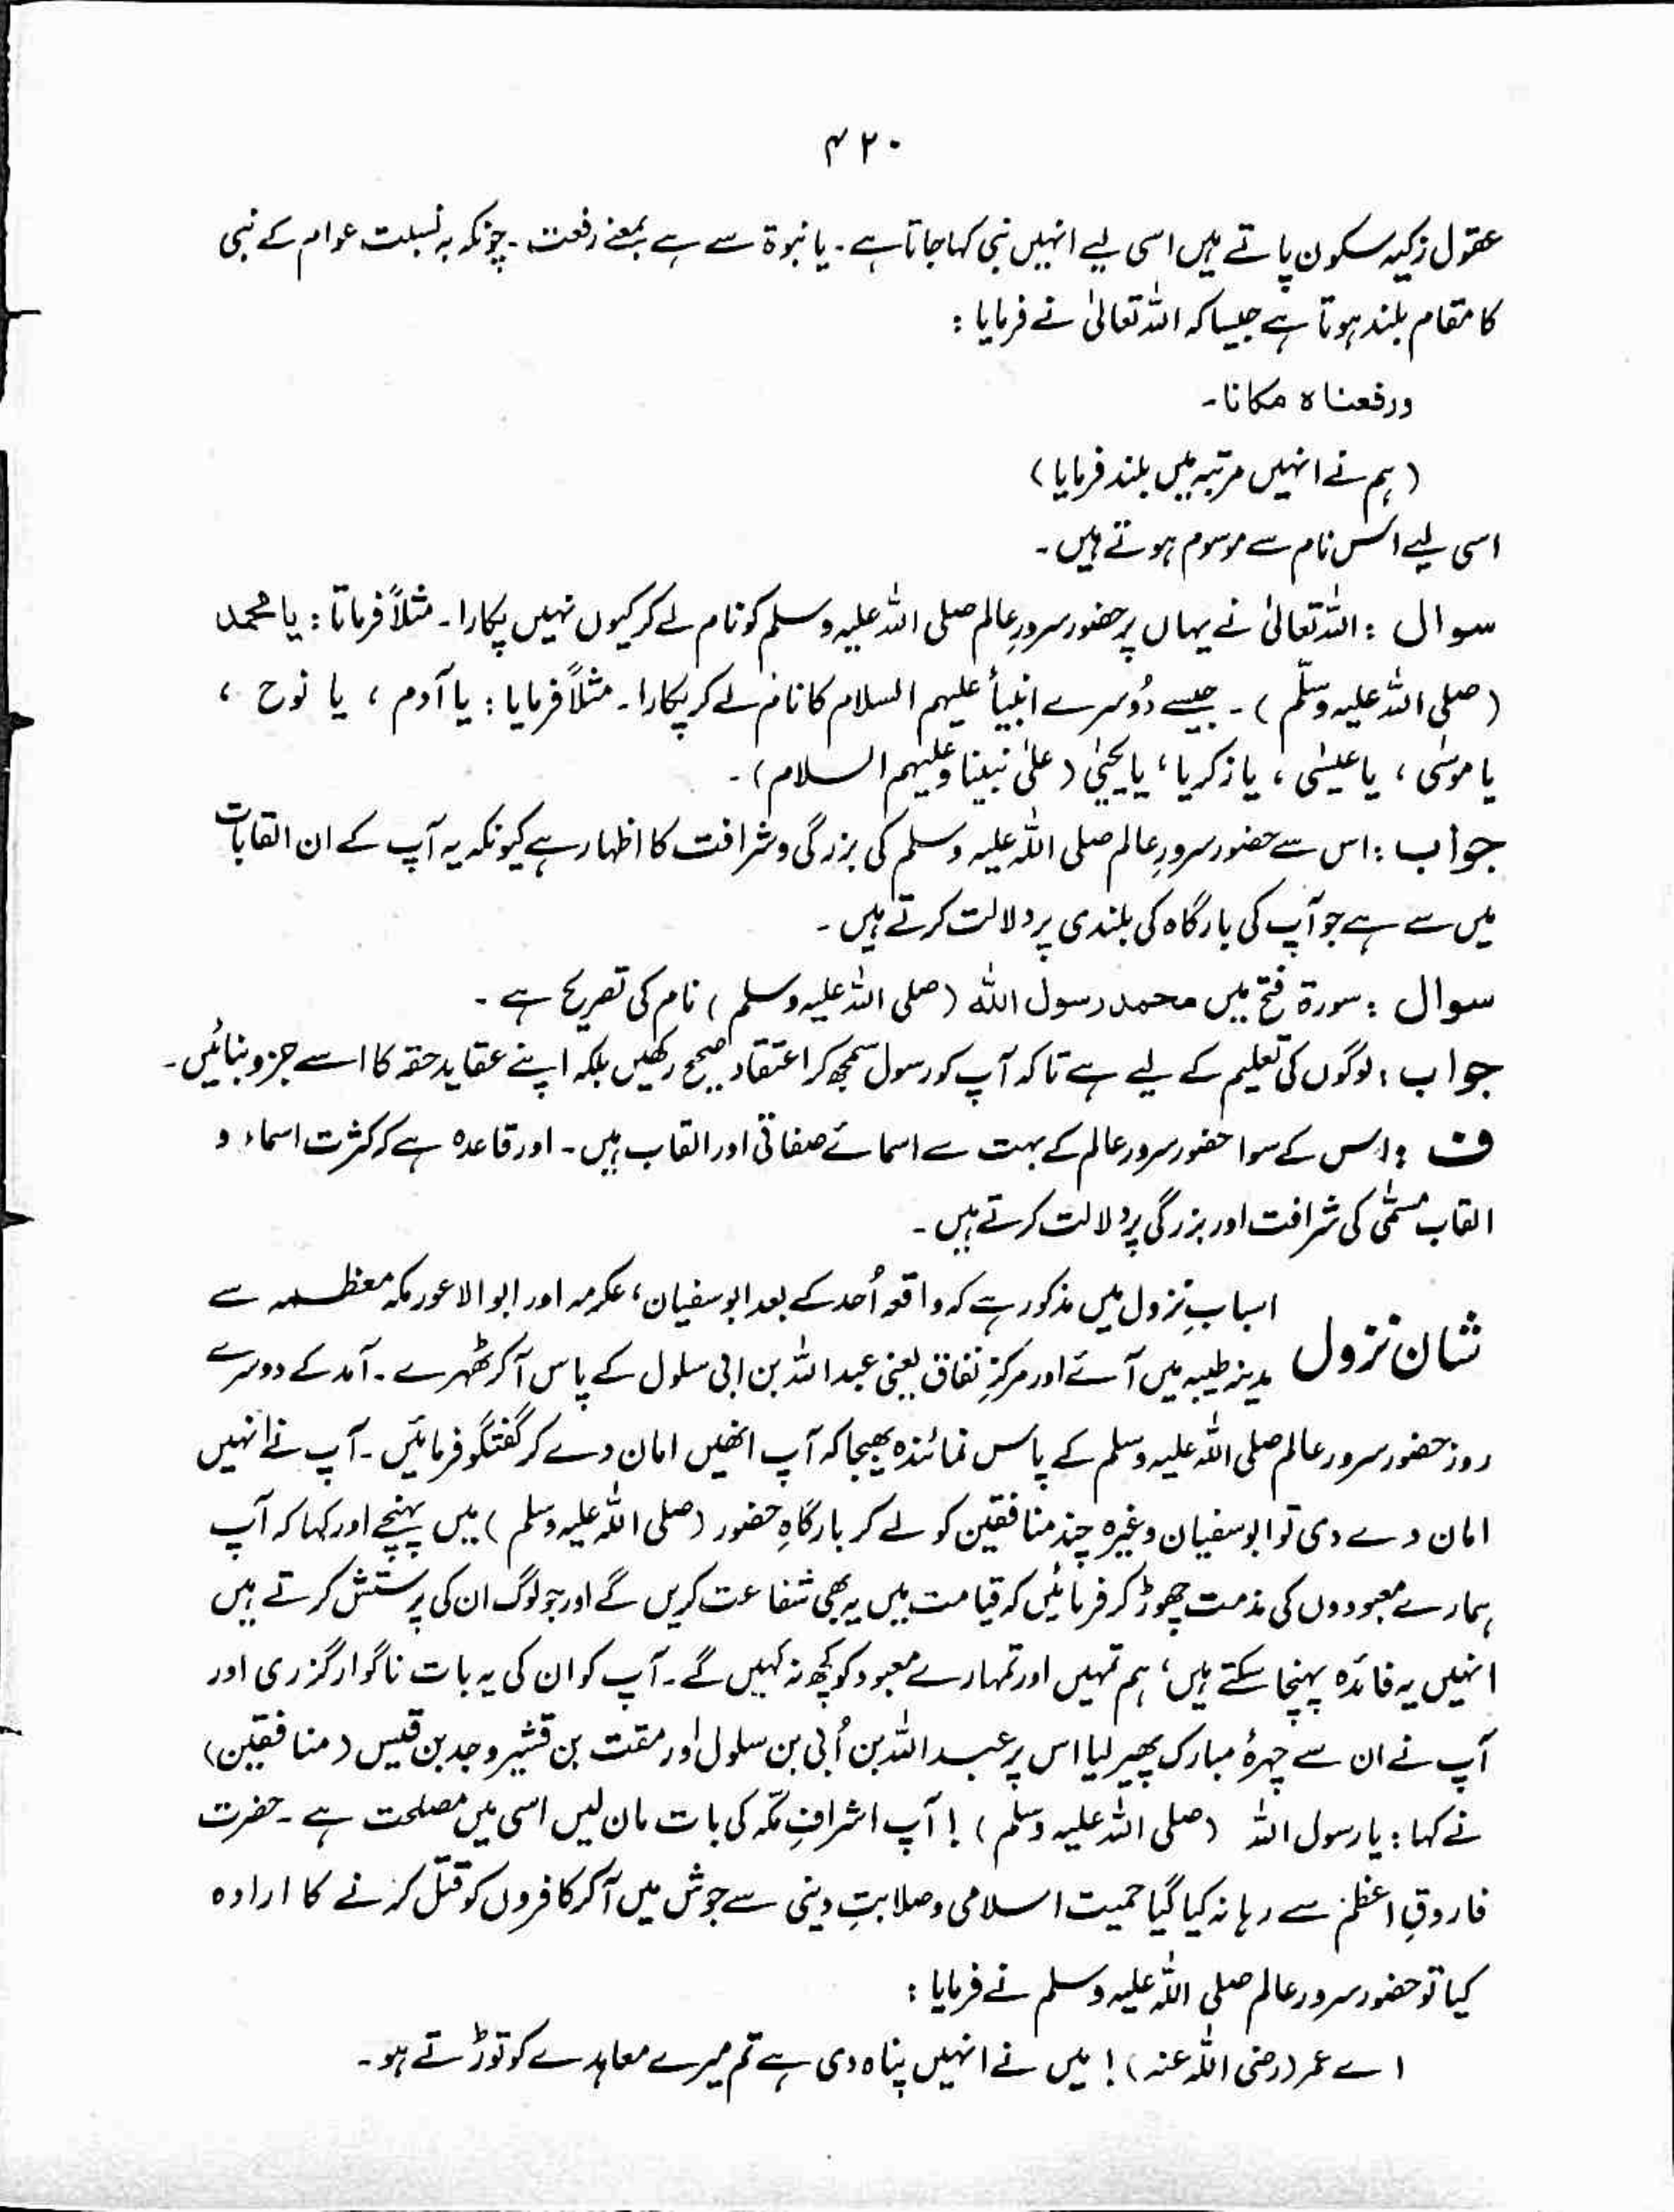 ۴۲۰
عقول زکیہ سکون پاتے ہیں اسی لیے انہیں نبی کہا جاتا ہے۔ یا نبوۃ سے ہے بمعنے رفعت۔ چونکہ بہ نسبت عوام کے نبی
کا مقام بلند ہوتا ہے جیسا کہ اللہ تعالیٰ نے فرمایا :
ورفعناہ مکانا۔
(ہم نے انہیں مرتبہ میں بلند فرمایا)
اسی لیے اس نام سے موسوم ہوتے ہیں۔
سوال : اللہ تعالیٰ نے یہاں پر حضور سرورِ عالم صلی اللہ علیہ وسلم کو نام لے کر کیوں نہیں پکارا۔ مثلاً فرماتا : یا محمد
(صلی اللہ علیہ وسلّم)۔ جیسے دُوسرے انبیأ علیہم السلام کا نام لے کر پکارا۔ مثلاً فرمایا : یا آدم ، یا نوح ،
یا موسٰی ، یا عیسٰی ، یا زکریا ، یا یحییٰ (علیٰ نبینا وعلیہم السلام)۔
جواب : اس سے حضور سرورِ عالم صلی اللہ علیہ وسلم کی بزرگی و شرافت کا اظہار ہے کیونکہ یہ آپ کے ان القابات
میں سے ہے جو آپ کی بارگاہ کی بلندی پر دلالت کرتے ہیں۔
سوال : سورۃ فتح میں محمد رسول اللہ (صلی اللہ علیہ وسلم) نام کی تصریح ہے ۔
جواب : لوگوں کی تعلیم کے لیے ہے تاکہ آپ کو رسول سمجھ کر اعتقاد صحیح رکھیں بلکہ اپنے عقاید حقہ کا اسے جزو بنائیں۔
ف : اس کے سوا حضور سرور عالم کے بہت سے اسمائے صفاتی اور القاب ہیں۔ اور قاعدہ ہے کہ کثرت اسماء و
القاب مسمّٰی کی شرافت اور بزرگی پر دلالت کرتے ہیں۔
شان نزول اسبابِ نزول میں مذکور ہے کہ واقعہ اُحد کے بعد ابوسفیان ، عکرمہ اور ابو الاعور مکہ معظمہ سے
مدینہ طیبہ میں آئے اور مرکزِ نفاق یعنی عبد اللہ بن ابی سلول کے پاس آکر ٹھہرے۔ آمد کے دوسرے
روز حضور سرور عالم صلی اللہ علیہ وسلم کے پاس نمائندہ بھیجا کہ آپ انھیں امان دے کر گفتگو فرمائیں۔ آپ نے انہیں
امان دے دی تو ابوسفیان وغیرہ چند منافقین کو لے کر بارگاہِ حضور (صلی اللہ علیہ وسلم) میں پہنچے اور کہا کہ آپ
ہمارے معبودوں کی مذمت چھوڑ کر فرمائیں کہ قیامت میں یہ بھی شفاعت کریں گے اور جو لوگ ان کی پرستش کرتے ہیں
انہیں یہ فائدہ پہنچا سکتے ہیں ، ہم تمہیں اور تمہارے معبود کو کچھ نہ کہیں گے۔ آپ کو ان کی یہ بات ناگوار گزری اور
آپ نے ان سے چہرۂ مبارک پھیر لیا اس پر عبد اللہ بن اُبی بن سلول اور مقت بن قشیر و جد بن قیس (منافقین)
نے کہا : یا رسول اللہ (صلی اللہ علیہ وسلم) ! آپ اشرافِ مکّہ کی بات مان لیں اسی میں مصلحت ہے۔ حضرت
فاروقِ اعظم سے رہا نہ کیا گیا حمیت اسلامی و صلابتِ دینی سے جوش میں آکر کافروں کو قتل کرنے کا ارادہ
کیا تو حضور سرور عالم صلی اللہ علیہ وسلم نے فرمایا :
اے عمر (رضی اللہ عنہ) ! میں نے انہیں پناہ دی ہے تم میرے معاہدے کو توڑتے ہو۔